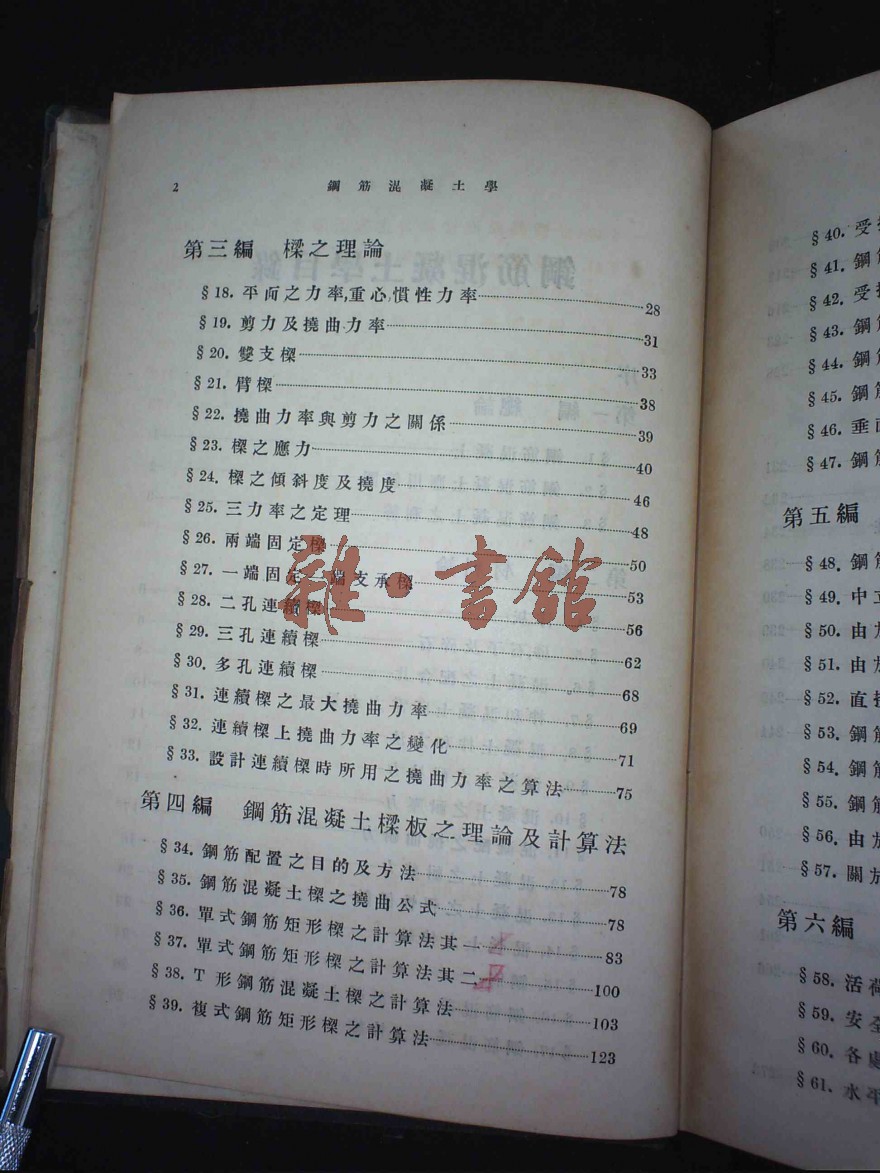 2 鋼筋混凝土學
第三編 樑之理論
§18. 平面之力率,重心,慣性力率 28
§19. 剪力及撓曲力率 31
§20. 雙支樑 33
§21. 臂樑 38
§22. 撓曲力率與剪力之關係 39
§23. 樑之應力 40
§24. 樑之傾斜度及撓度 46
§25. 三力率之定理 48
§26. 兩端固定樑 50
§27. 一端固定一端支承樑 53
§28. 二孔連續樑 56
§29. 三孔連續樑 62
§30. 多孔連續樑 68
§31. 連續樑之最大撓曲力率 69
§32. 連續樑上撓曲力率之變化 71
§33. 設計連續樑時所用之撓曲力率之算法 75
第四編 鋼筋混凝土樑板之理論及計算法
§34. 鋼筋配置之目的及方法 78
§35. 鋼筋混凝土樑之撓曲公式 78
§36. 單式鋼筋矩形樑之計算法其一 83
§37. 單式鋼筋矩形樑之計算法其二 100
§38. T 形鋼筋混凝土樑之計算法 103
§39. 複式鋼筋矩形樑之計算法 123
雜·書館
§40. 受
§41. 鋼
§42. 受
§43. 鋼
§44. 鋼
§45. 鋼
§46. 垂
§47. 鋼
第五編
§48. 鋼
§49. 中
§50. 由
§51. 由
§52. 直
§53. 鋼
§54. 鋼
§55. 鋼
§56. 由
§57. 關
第六編
§58. 活
§59. 安
§60. 各
§61. 水